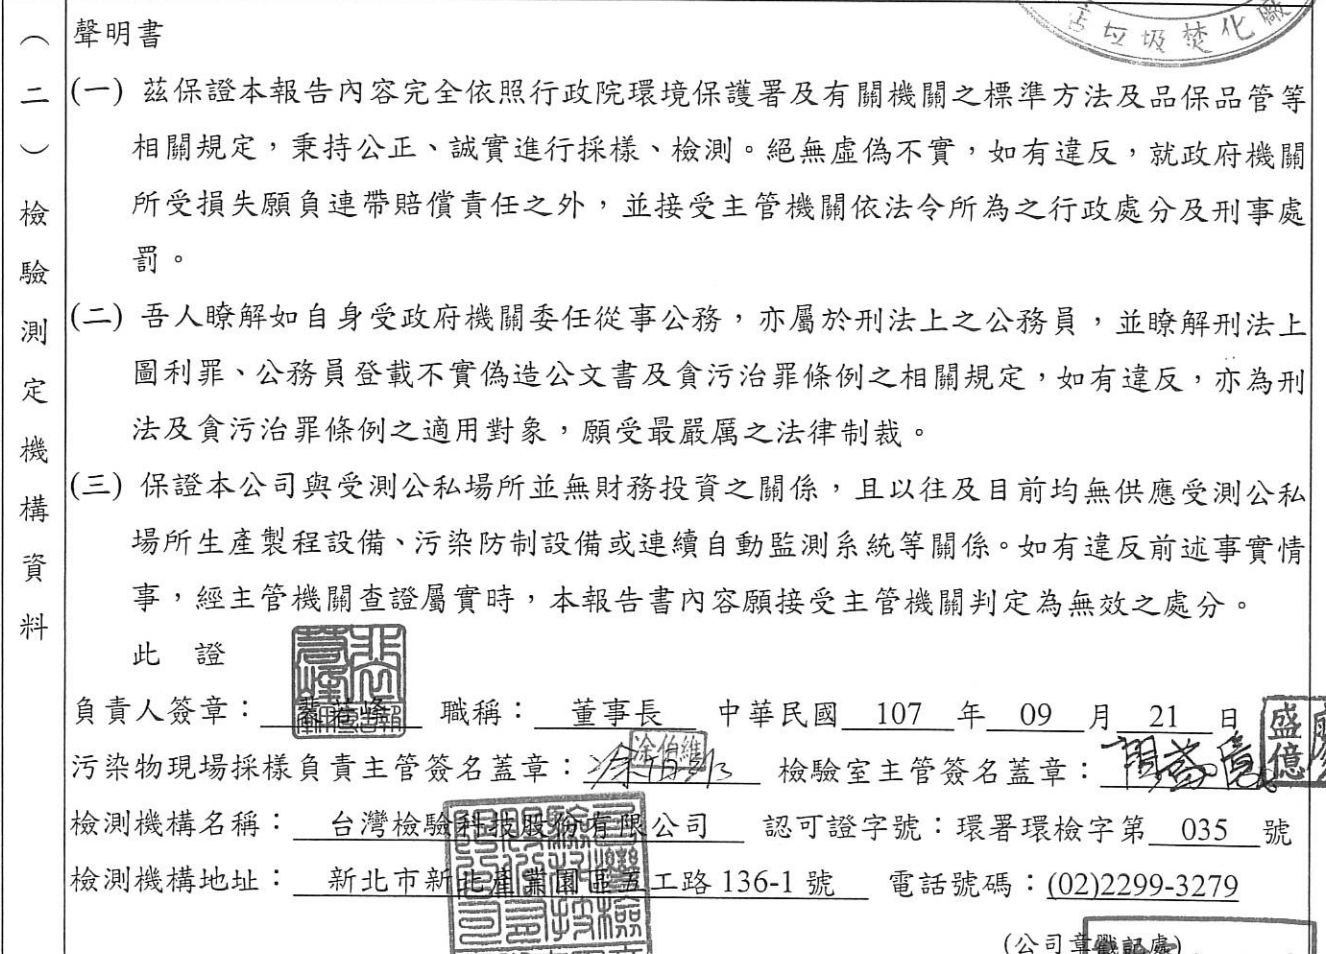 垃圾焚化廠
(二)檢驗測定機構資料
聲明書
(一) 茲保證本報告內容完全依照行政院環境保護署及有關機關之標準方法及品保品管等
相關規定，秉持公正、誠實進行採樣、檢測。絕無虛偽不實，如有違反，就政府機關
所受損失願負連帶賠償責任之外，並接受主管機關依法令所為之行政處分及刑事處
罰。
(二) 吾人瞭解如自身受政府機關委任從事公務，亦屬於刑法上之公務員，並瞭解刑法上
圖利罪、公務員登載不實偽造公文書及貪污治罪條例之相關規定，如有違反，亦為刑
法及貪污治罪條例之適用對象，願受最嚴厲之法律制裁。
(三) 保證本公司與受測公私場所並無財務投資之關係，且以往及目前均無供應受測公私
場所生產製程設備、污染防制設備或連續自動監測系統等關係。如有違反前述事實情
事，經主管機關查證屬實時，本報告書內容願接受主管機關判定為無效之處分。
此 證
負責人簽章： 職稱：董事長 中華民國 107 年 09 月 21 日
污染物現場採樣負責主管簽名蓋章：涂伯維 檢驗室主管簽名蓋章： 盛億
檢測機構名稱：台灣檢驗科技股份有限公司 認可證字號：環署環檢字第 035 號
檢測機構地址：新北市新北產業園區五工路 136-1 號 電話號碼：(02)2299-3279
(公司章戳記處)